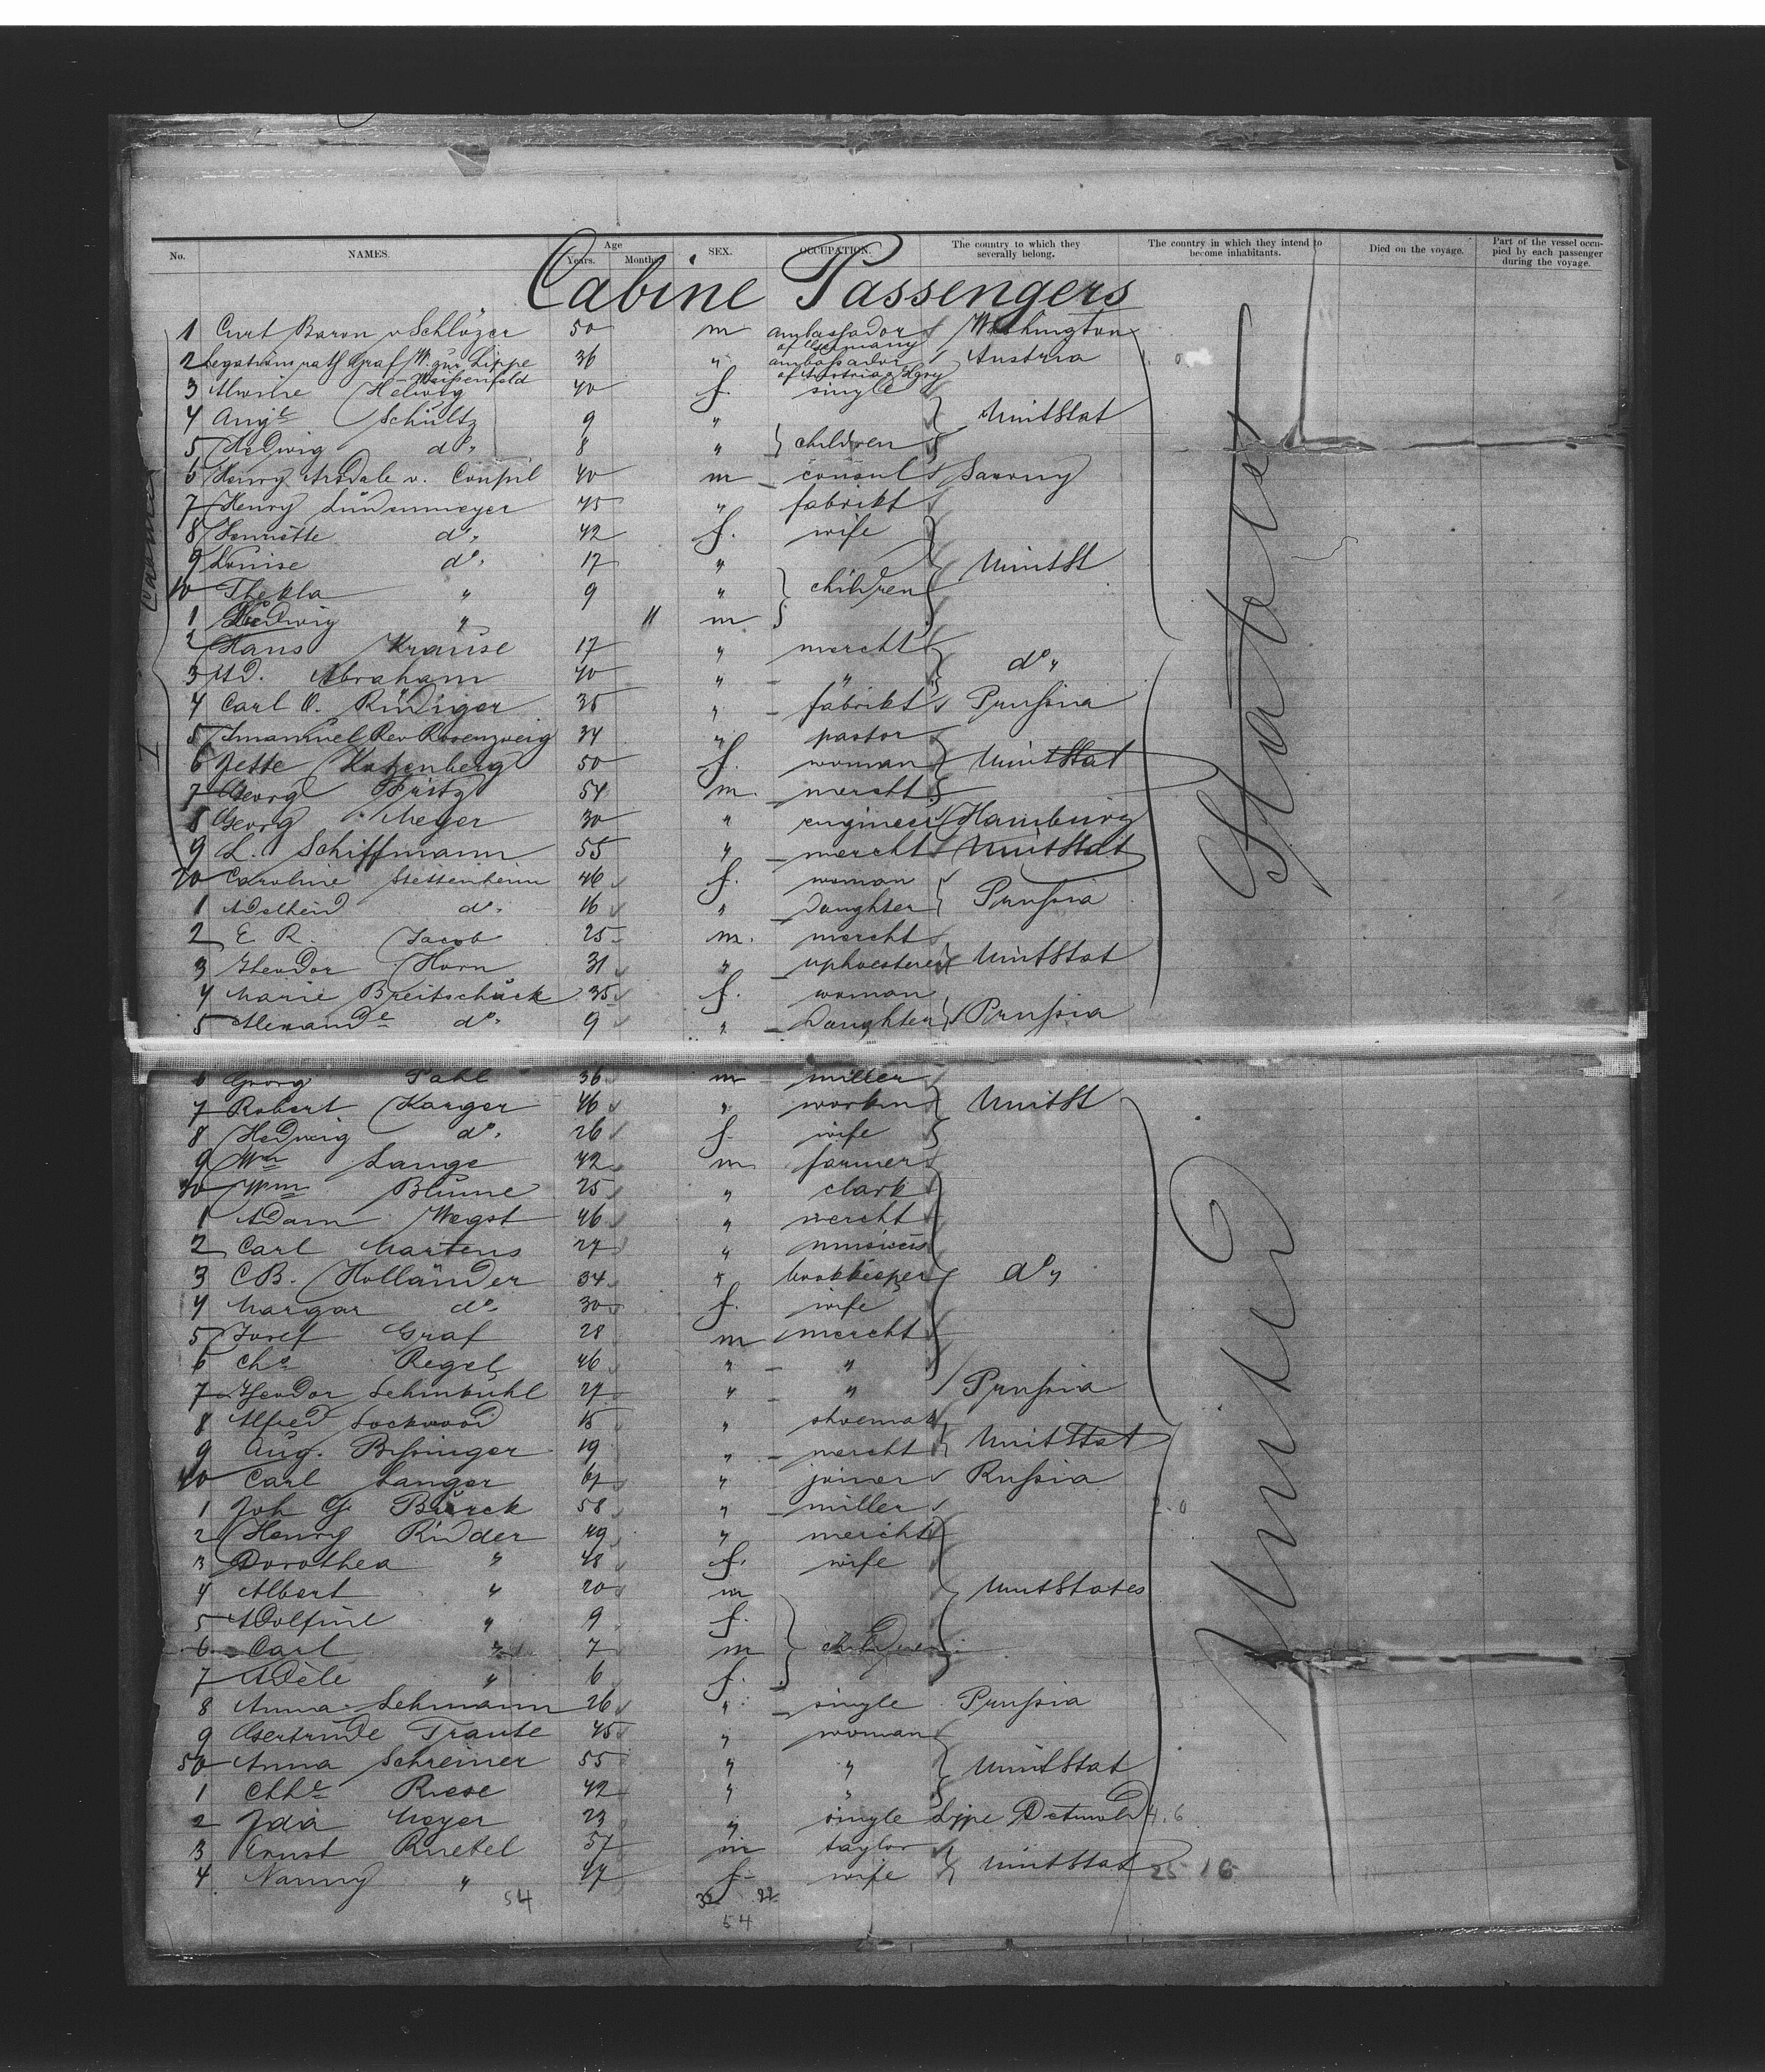 No. NAMES. Age Years. Months. SEX. OCCUPATION. The country to which they severally belong. The country in which they intend to become inhabitants. Died on the voyage. Part of the vessel occupied by each passenger during the voyage.
Cabine Passengers
1 Curt Baron v Schlözer 50 m ambassador of Germany Washington
2 Legationsrath Graf W. zur Lippe Weißenfeld 36 " ambassador of Austria Austria
3 Helwig 40 f. single
4 Schultz 9 " UnitStat
5 Hedwig do. 8 " children
6 Henry v. 40 m consul Saxony
7 Henry Lindenmeyer 45 " fabrikt
8 Henriette do. 42 f. wife
9 Louise do. 17 " UnitSt
10 Thekla " 9 " children
1 Ludwig " 11 m
2 Hans Krause 17 " mercht
3 Md. Abraham 40 " " do.
4 Carl O. Rüdiger 35 " fabrikt Prussia
5 Imanuel Rev Rosenzweig 34 " pastor
6 Jette Katzenberg 50 f. woman UnitStat
7 Georg Fritz 54 m. mercht
8 Georg Meyer 30 " engineer Hamburg
9 L. Schiffmann 55 " mercht UnitStat
20 Caroline Stettenheim 46 f. woman
1 Adelheid do. 16 " Daughter Prussia
2 E R. Jacob 25 m. mercht
3 Theodor Horn 31 " upholsterer UnitStat
4 Marie Breitschuck 35 f. woman
5 Alexande do. 9 " Daughter Prussia
6 Georg Pahl 36 m miller
7 Robert Karger 46 " workm UnitSt
8 Hedwig do. 26 f. wife
9 Wm Lange 42 m farmer
30 Wm Blume 25 " clark
1 Adam Wegst 46 " mercht
2 Carl Martens 27 " musicus
3 C B. Holländer 34 " bookkeeper do "
4 Margar do. 30 f. wife
5 Josef Graf 28 m mercht
6 Chs Regel 46 " "
7 Theodor Lehmkuhl 27 " " Prussia
8 Alfred Lockwood 15 " shoemak
9 Aug. Bissinger 19 " mercht UnitStat
40 Carl Langer 61 " joiner Russia
1 Joh G. Burck 58 " miller
2 Henry Rudder 49 " mercht
3 Dorothea " 48 f. wife
4 Albert " 20 m UnitStates
5 Adolfine " 9 f.
6 Carl " 7 m children
7 Adele " 6 f.
8 Anna Lehmann 26 " single Prussia
9 Gertrude Traute 45 " woman
50 Anna Schreiner 55 " " UnitStat
1 Riese 42 " "
2 Ida Meyer 23 " single Lippe Detmold 4.6
3 Ernst Knebel 57 m taylor
4 Nanny " 47 f. wife UnitStat 25 16
54 32 22
54
United States